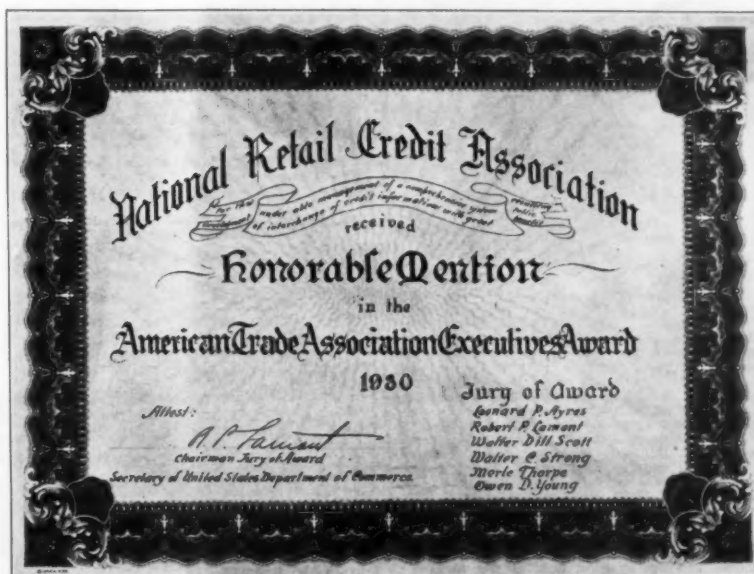 National Retail Credit Association
For the development under able management of a comprehensive system of interchange of credit information with great resulting public benefit
received
Honorable Mention
in the
American Trade Association Executives Award
1930
Attest:
R. P. Lamont
Chairman Jury of Award
Secretary of United States Department of Commerce
Jury of Award
Leonard P. Ayres
Robert P. Lamont
Walter Dill Scott
Walter C. Strong
Merle Thorpe
Owen D. Young